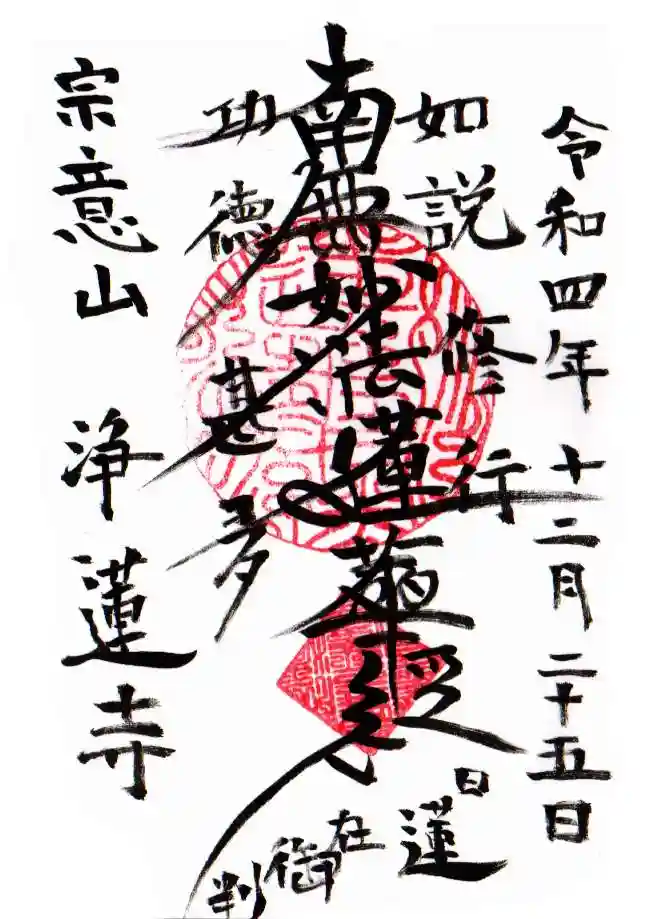 令和四年 十二月 二十五日
如説修行
南無妙法蓮華經
功徳甚多
日蓮
在御判
宗意山 浄蓮寺